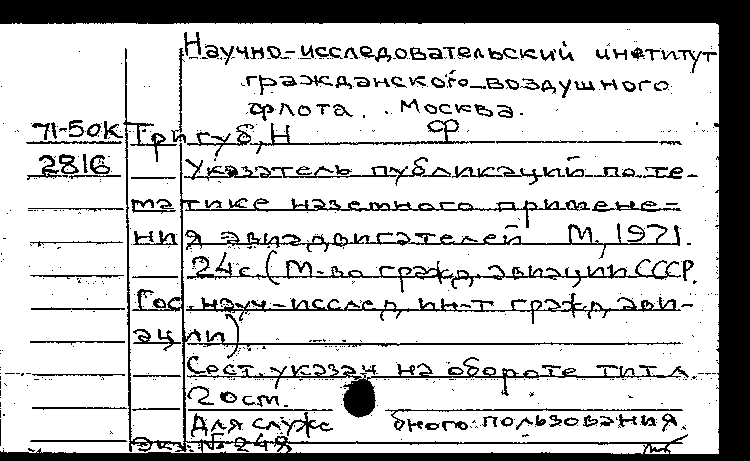 Научно-исследовательский институт
гражданского воздушного
флота. Москва.
71-50К Тригуб, Н Ф
2816 Указатель публикаций по те-
матике наземного примене-
ния авиадвигателей М., 1971.
24с. (М-во гражд. авиации СССР.
Гос. науч-исслед. ин-т гражд. ави-
ации)
Сост. указан на обороте тит. л.
Для служебного пользования.
Экз. № 248